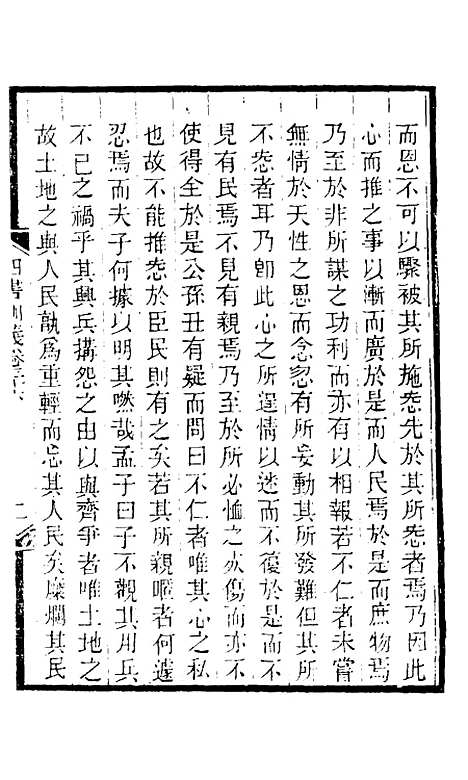 而恩不可以驟被其所施恝先於其所恝者焉乃因此
心而推之事以漸而廣於是人民焉於是而庶物焉
乃至於非所謀之功利而亦有以相報若不仁者未嘗
無情於天性之恩而念忽有所妄動其所發難但其所
不恝者耳乃卽此心之所逞情以迷而不復於是而不
見有民焉不見有親焉乃至於所必恤之亦傷而亦不
使得全於是公孫丑有疑而問曰不仁者唯其心之私
也故不能推恝於臣民則有之矣若其所親暱者何遽
忍焉而夫子何據以明其嘫哉孟子曰子不觀其用兵
不已之禍乎其興兵搆怨之由以與齊爭者唯土地之
故土地之與人民孰爲重輕而忘其人民矣糜爛其民
四書訓義卷三十六
二